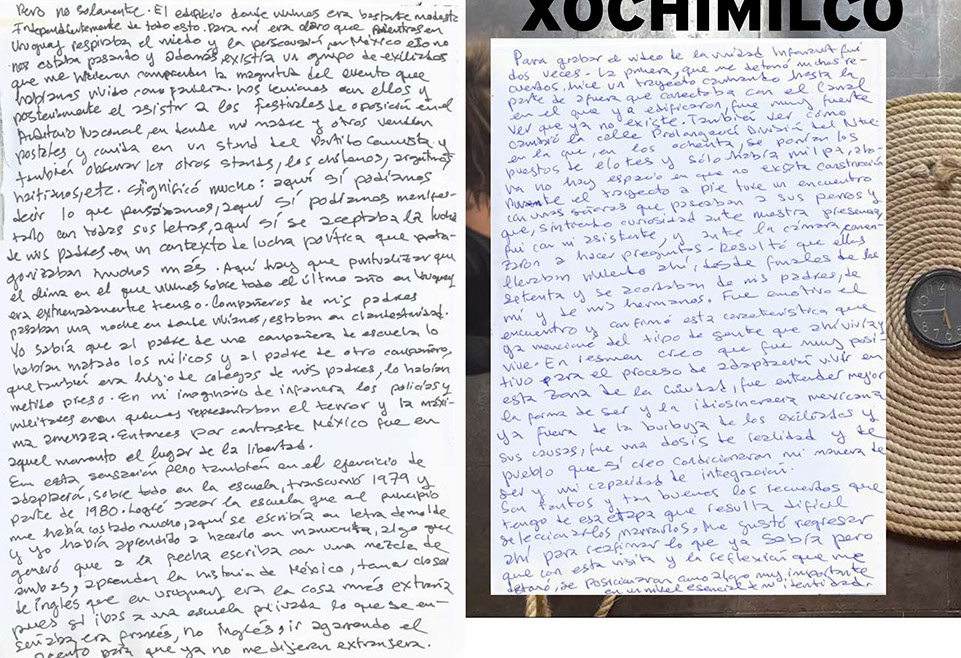 Pero no solamente. El edificio donde vivimos era bastante modesto
Independientemente de todo esto. Para mí era claro que mientras en
Uruguay respiraba el miedo y la persecución, en México eso no
nos estaba pasando y además, existía un grupo de exiliados
que me hicieron comprender la magnitud del evento que
habíamos vivido como familia. Los
posteriormente el asistir a los festivales de oposición en el
Auditorio Nacional, en donde mi madre y otros vendían
postales y comida en un stand del Partido Comunista y
también observar los otros stands, los chilenos, argentinos
haitianos, etc. Significó mucho: aquí sí podíamos
decir lo que pensábamos, aquí sí podíamos manifes-
tarlo con todas sus letras, aquí sí se aceptaba la lucha
de mis padres en un contexto de lucha política que prota-
gonizaban muchos más. Aquí hay que puntualizar que
el clima en el que vivimos sobre todo el último año en Uruguay
era extremadamente tenso. Compañeros de mis padres
pasaban una noche en donde vivíamos, estaban en clandestinidad.
Yo sabía que al padre de una compañera de escuela lo
habían matado los milicos y al padre de otro compañero,
que también era hijo de colegas de mis padres, lo habían
metido preso. En mi imaginario de infancia los policías y
militares eran quienes representaban el terror y la máxi-
ma amenaza. Entonces por contraste México fue en
aquel momento el lugar de la libertad.
En esta sensación pero también en el ejercicio de
adaptación, sobre todo en la escuela, transcurrió 1979 y
parte de 1980. Logré sacar la escuela que al principio
me había costado mucho, aquí se escribía en letra de molde
y yo había aprendido a hacerlo en manuscrita, algo que
generó que a la fecha escriba con una mezcla de
ambas, aprender la historia de México, tomar clases
de inglés que en Uruguay era la cosa más extraña
pues si ibas a una escuela privada lo que se en-
señaba era francés, no inglés, ir agarrando el
acento para que ya no me dijeran extranjera.
XOCHIMILCO
Para grabar el video de la unidad Infonavit fui
dos veces. La primera, que me detonó muchos re-
cuerdos, hice un trayecto caminando hasta la
parte de afuera que conectaba con el Canal
en el que ya edificaron, fue muy fuerte
ver que ya no existe. También ver cómo
cambió la calle Prolongación División del Nte.
en la que, en los ochenta, se ponían los
puestos de elotes y sólo había milpa, aho-
ra no hay espacio en que no exista construcción
Durante el trayecto a pie tuve un encuentro
con unas señoras que paseaban a sus perros y
que, sintiendo curiosidad ante nuestra presencia,
fui con mi asistente, y ante la cámara, comen-
zaron a hacer preguntas. Resultó que ellas
llevaban viviendo ahí, desde finales de los
setenta y se acordaban de mis padres, de
mí y de mis hermanos. Fue emotivo el
encuentro y confirmó esta característica que
ya mencioné del tipo de gente que ahí vivía y
vive. En resumen creo que fue muy posi-
tivo para el proceso de adaptación vivir en
esta zona de la ciudad, fue entender mejor
la forma de ser y la idiosincrasia mexicana
ya fuera de la burbuja de los exiliados y
sus causas, fue una dosis de realidad y de
pueblo que sí creo condicionaron mi manera de
ser y mi capacidad de integración.
Son tantos y tan buenos los recuerdos que
tengo de esa etapa que resulta difícil
seleccionarlos, narrarlos, me gustó regresar
ahí para reafirmar lo que ya sabía pero
que con esta visita y la reflexión que me
detonó, se posicionaron como algo muy importante
en un nivel esencial a mi identidad.